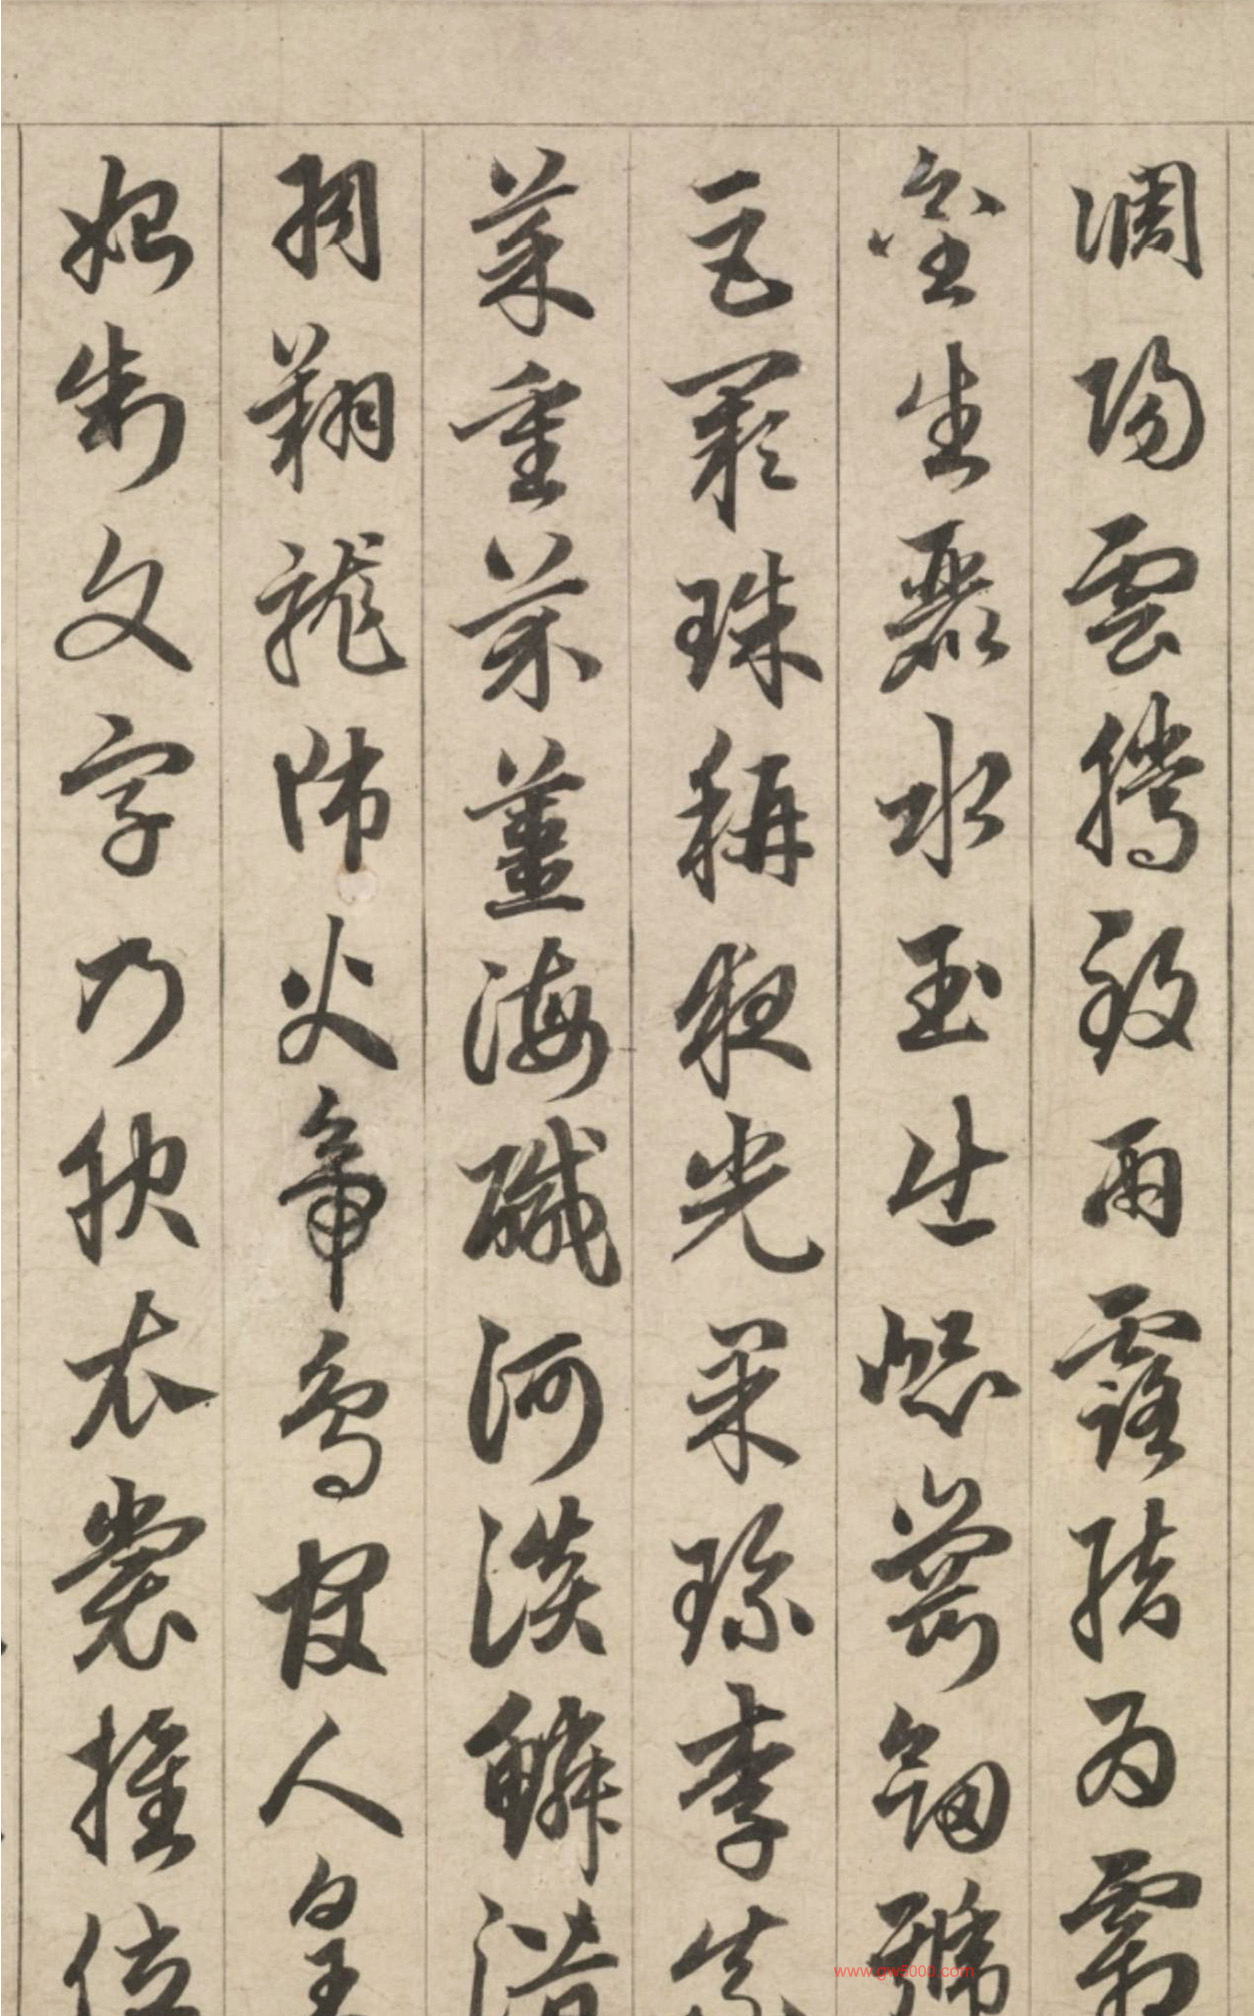 調陽雲騰致雨露結為霜
金生麗水玉出崑崗劍號
巨闕珠稱夜光果珍李柰
菜重芥薑海鹹河淡鱗潛
羽翔龍師火帝鳥官人皇
始制文字乃服衣裳推位
www.gw5000.com